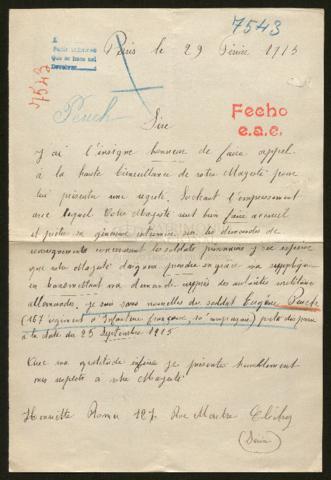 7543
A
Pedir informes
Que se haga así
Devolver
7543
Paris le 29 Février 1915
Perch
Fecho
e.a.c.
Sire
J'ai l'insigne honneur de faire appel
à la haute bienveillance de votre Majesté pour
lui présenter une requête. Sachant l'empressement
avec lequel Votre Majesté veut bien faire accueil
et prêter sa généreuse entremise sur les demandes de
renseignements concernant les soldats prisonniers j'ose espérer
que votre Majesté daignera prendre en grâce ma supplique
en transmettant ma demande auprès des autorités militaires
allemandes. je suis sans nouvelles du soldat Eugène
(167 régiment d'Infanterie française, 10e compagnie) porté disparu
à la date du 25 Septembre 1915
Avec ma gratitude infinie je présente humblement
mes respects à votre Majesté
Henriette 127 Rue Martre Clichy
(Seine)